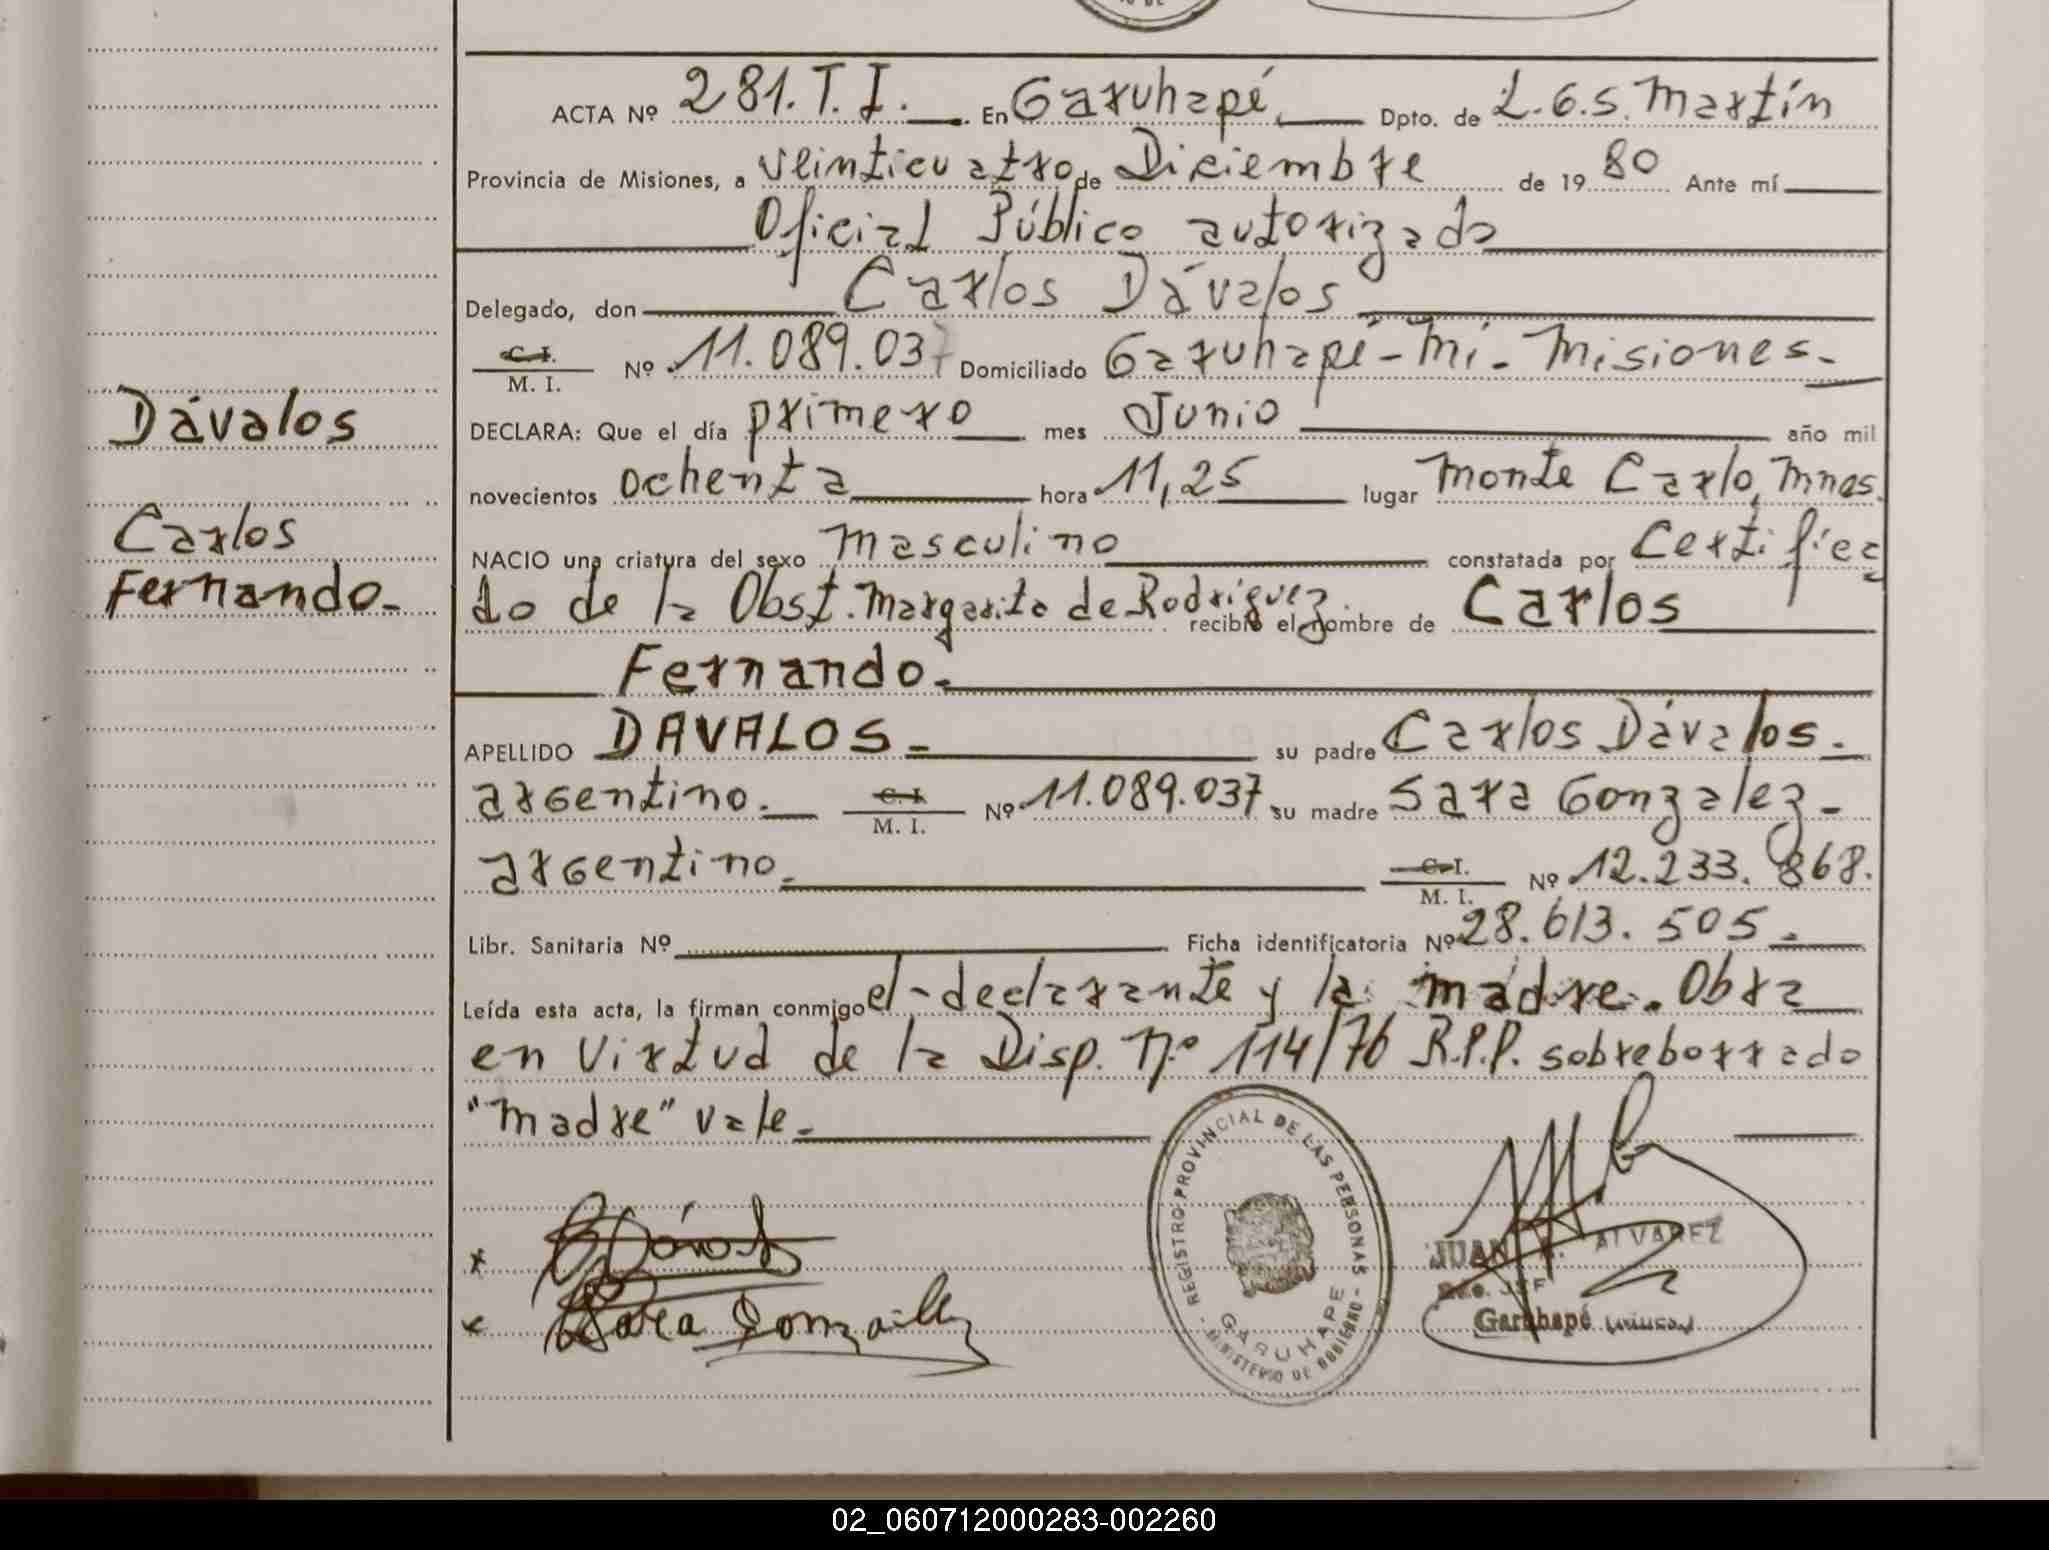 ACTA Nº 281.T.I. En Garuhapé Dpto. de L.G.S. Martín
Provincia de Misiones, a veinticuatro de Diciembre de 19 80 Ante mí
Oficial Público autorizado
Delegado, don Carlos Dávalos
C. I. M. I. Nº 11.089.037 Domiciliado Garuhapé-Mí-Misiones-
Dávalos
DECLARA: Que el día primero mes Junio año mil
novecientos ochenta hora 11,25 lugar Monte Carlo, Mnes.
Carlos
NACIO una criatura del sexo masculino constatada por Certifica
Fernando-
do de la Obst. Margarita de Rodriguez. recibió el nombre de Carlos
Fernando.
APELLIDO DAVALOS- su padre Carlos Dávalos.
argentino. C. I. M. I. Nº 11.089.037 su madre Sara Gonzalez-
argentino. C. I. M. I. Nº 12.233.868.
Libr. Sanitaria Nº Ficha identificatoria Nº 28.613.505.
Leída esta acta, la firman conmigo el-declarante y la madre. Obra
en virtud de la Disp. Nº 114/76 R.P.P. sobreborrado
"madre" vale-
REGISTRO PROVINCIAL DE LAS PERSONAS - MINISTERIO DE GOBIERNO -
GARUHAPE
JUAN ALVAREZ
Garuhapé
Sara Gonzalez
02_060712000283-002260